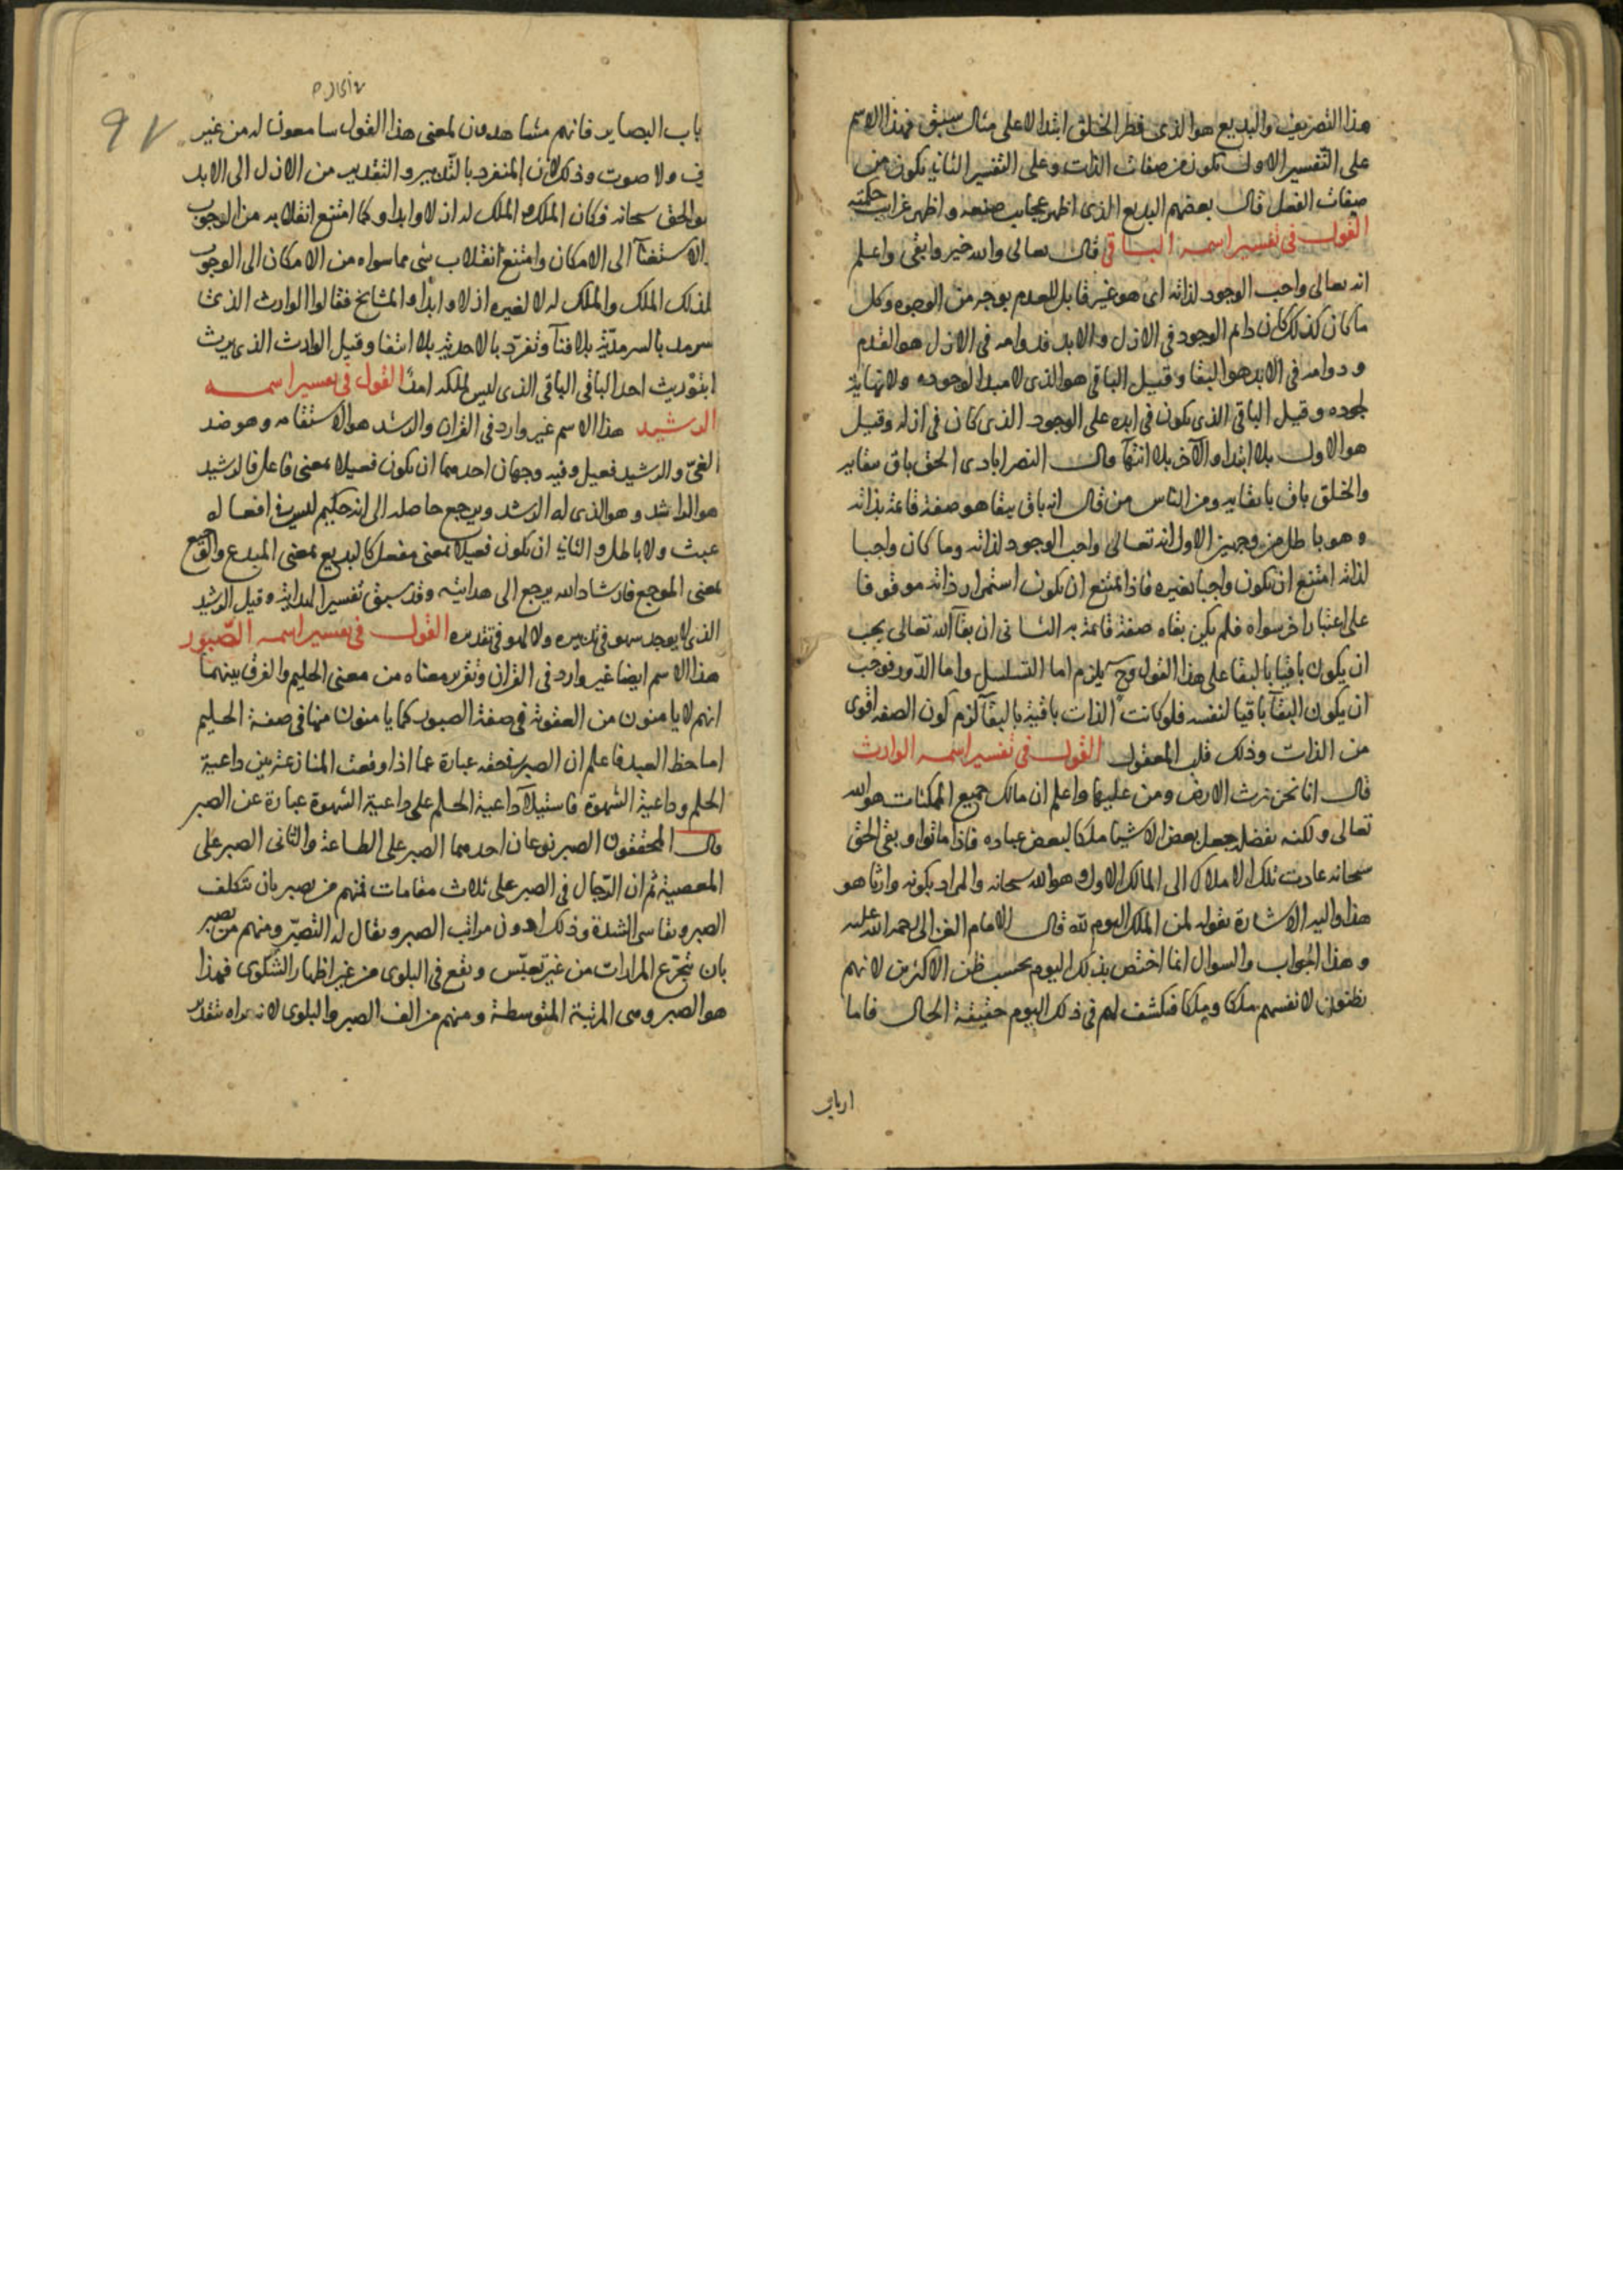 هذا التصريف والبديع هو الذى فطر الخلق ابتدا لا على مثال سبق فهذا الاسم
على التفسير الاول يكون من صفات الذات وعلى التفسير الثانى يكون من
صفات الفعل قال بعضهم البديع الذى اظهر عجايب صنعه واظهر غرايب حكمته
القول فى تفسير اسمه الباقى قال تعالى والله خير وابقى واعلم
انه تعالى واجب الوجود لذاته اى هو غير قابل للعدم بوجه من الوجوه وكل
ما كان كذلك كان دايم الوجود فى الازل والابد فدوامه فى الازل هو القدم
ودوامه فى الابد هو البقا وقيل الباقى هو الذى لا مبدا لوجوده ولا نهاية
لجوده وقيل الباقى الذى يكون فى ابده على الوجود الذى كان فى ازله وقيل
هو الاول بلا ابتدا والآخر بلا انتهآ وقال النصرابادى الحق باق ببقايه
والخلق باق بابقايه ومن الناس من قال انه باق ببقا هو صفة قايمة بذاته
وهو باطل من وجهين الاول انه تعالى واجب الوجود لذاته وما كان واجبا
لذاته امتنع ان يكون واجبا بغيره فاذا يمتنع ان يكون استمرار ذاته موقوفا
على اعتبار اخر سواه فلم يكن بقاه صفة قايمة به الثانى ان بقآ الله تعالى يجب
ان يكون باقيا بالبقا على هذا القول وح يلزم اما التسلسل واما الدّور فوجب
ان يكون البقآ باقيا لنفسه فلو كانت الذات باقية بالبقآ لزم كون الصفه اقوى
من الذات وذلك قلب المعقول القول فى تفسير اسمه الوارث
قال انا نحن نرث الارض ومن عليها واعلم ان مالك جميع الممكنات هو الله
تعالى ولكنه بفضله جعل بعض الاشيا ملكا لبعض عباده فاذا ماتوا وبقى الحق
سبحانه عادت تلك الاملاك الى المالك الاول وهو الله سبحانه والمراد بكونه وارثا هو
هذا واليه الاشارة بقوله لمن الملك اليوم لله قال الامام الغزالى رحمه الله عليه
وهذا الجواب والسوال انما اختص بذلك اليوم بحسب ظن الاكثرين لانهم
يظنون لانفسهم ملكا وملكا فيكشف لهم فى ذلك اليوم حقيقة الحال فاما
ارباب
97
باب البصاير فانهم مشاهدون لمعنى هذا القول سامعون له من غير
ف ولا صوت وذلك لان المنفرد بالتدبير والتقدير من الازل الى الابد
هو الحق سبحانه فكان الملك والملك له ازلا وابدا وكما امتنع انقلابه من الوجوب
والاستغنآ الى الامكان وامتنع انقلاب شى مما سواه من الامكان الى الوجوب
لذلك الملك والملك له لا لغيره ازلا وابدا واما المشايخ فقالوا الوارث الذى
سرمد بالسرمدية بلا فنآ وتفرّد بالاحدية بلا انتفا وقيل الوارث الذى يرث
لا بتوريث احد الباقى الباقى الذى ليس لملكه امد القول فى تفسير اسمه
الرشيد هذا الاسم غير وارد فى القران والرشد هو الاستقامه وهو ضد
الغىّ والرشيد فعيل وفيه وجهان احدهما ان يكون فعيلا بمعنى فاعل فالرشيد
هو الراشد وهو الذى له الرشد ويرجع حاصله الى انه حكيم ليس فى افعاله
عبث ولا باطل والثانى ان يكون فعيلا بمعنى مفعل كالبديع بمعنى المبدع والوجيع
بمعنى الموجع فارشاد الله يرجع الى هدايته وقد سبق تفسير الهداية وقيل الرشيد
الذى لا يوجد سهو فى تدبيره ولا لهو فى تقديره القول فى تفسير اسمه الصّبور
هذا الاسم ايضا غير وارد فى القران وتقرب معناه من معنى الحليم والفرق بينهما
انهم لا يامنون من العقوبة فى صفة الصبور كما يامنون منها فى صفة الحليم
اما حظ العبد فاعلم ان الصبر فى حقه عبارة عما اذا وقعت المنازعة بين داعية
الحلم وداعية الشهوة فاستيلآ داعية الحلم على داعية الشهوة عبارة عن الصبر
قال المحققون الصبر نوعان احدهما الصبر على الطاعة والثانى الصبر على
المعصية ثم ان الرّجال فى الصبر على ثلاث مقامات فمنهم من يصبر بان يتكلف
الصبر ويقاسى الشدة وذلك ادون مراتب الصبر ويقال له التصبّر ومنهم من يصبر
بان يتجرّع المرارات من غير تعبّس ويقع فى البلوى من غير اظهار الشكوى فهذا
هو الصبر وهى المرتبة المتوسطة ومنهم من الف الصبر والبلوى لانه يراه بتقدير